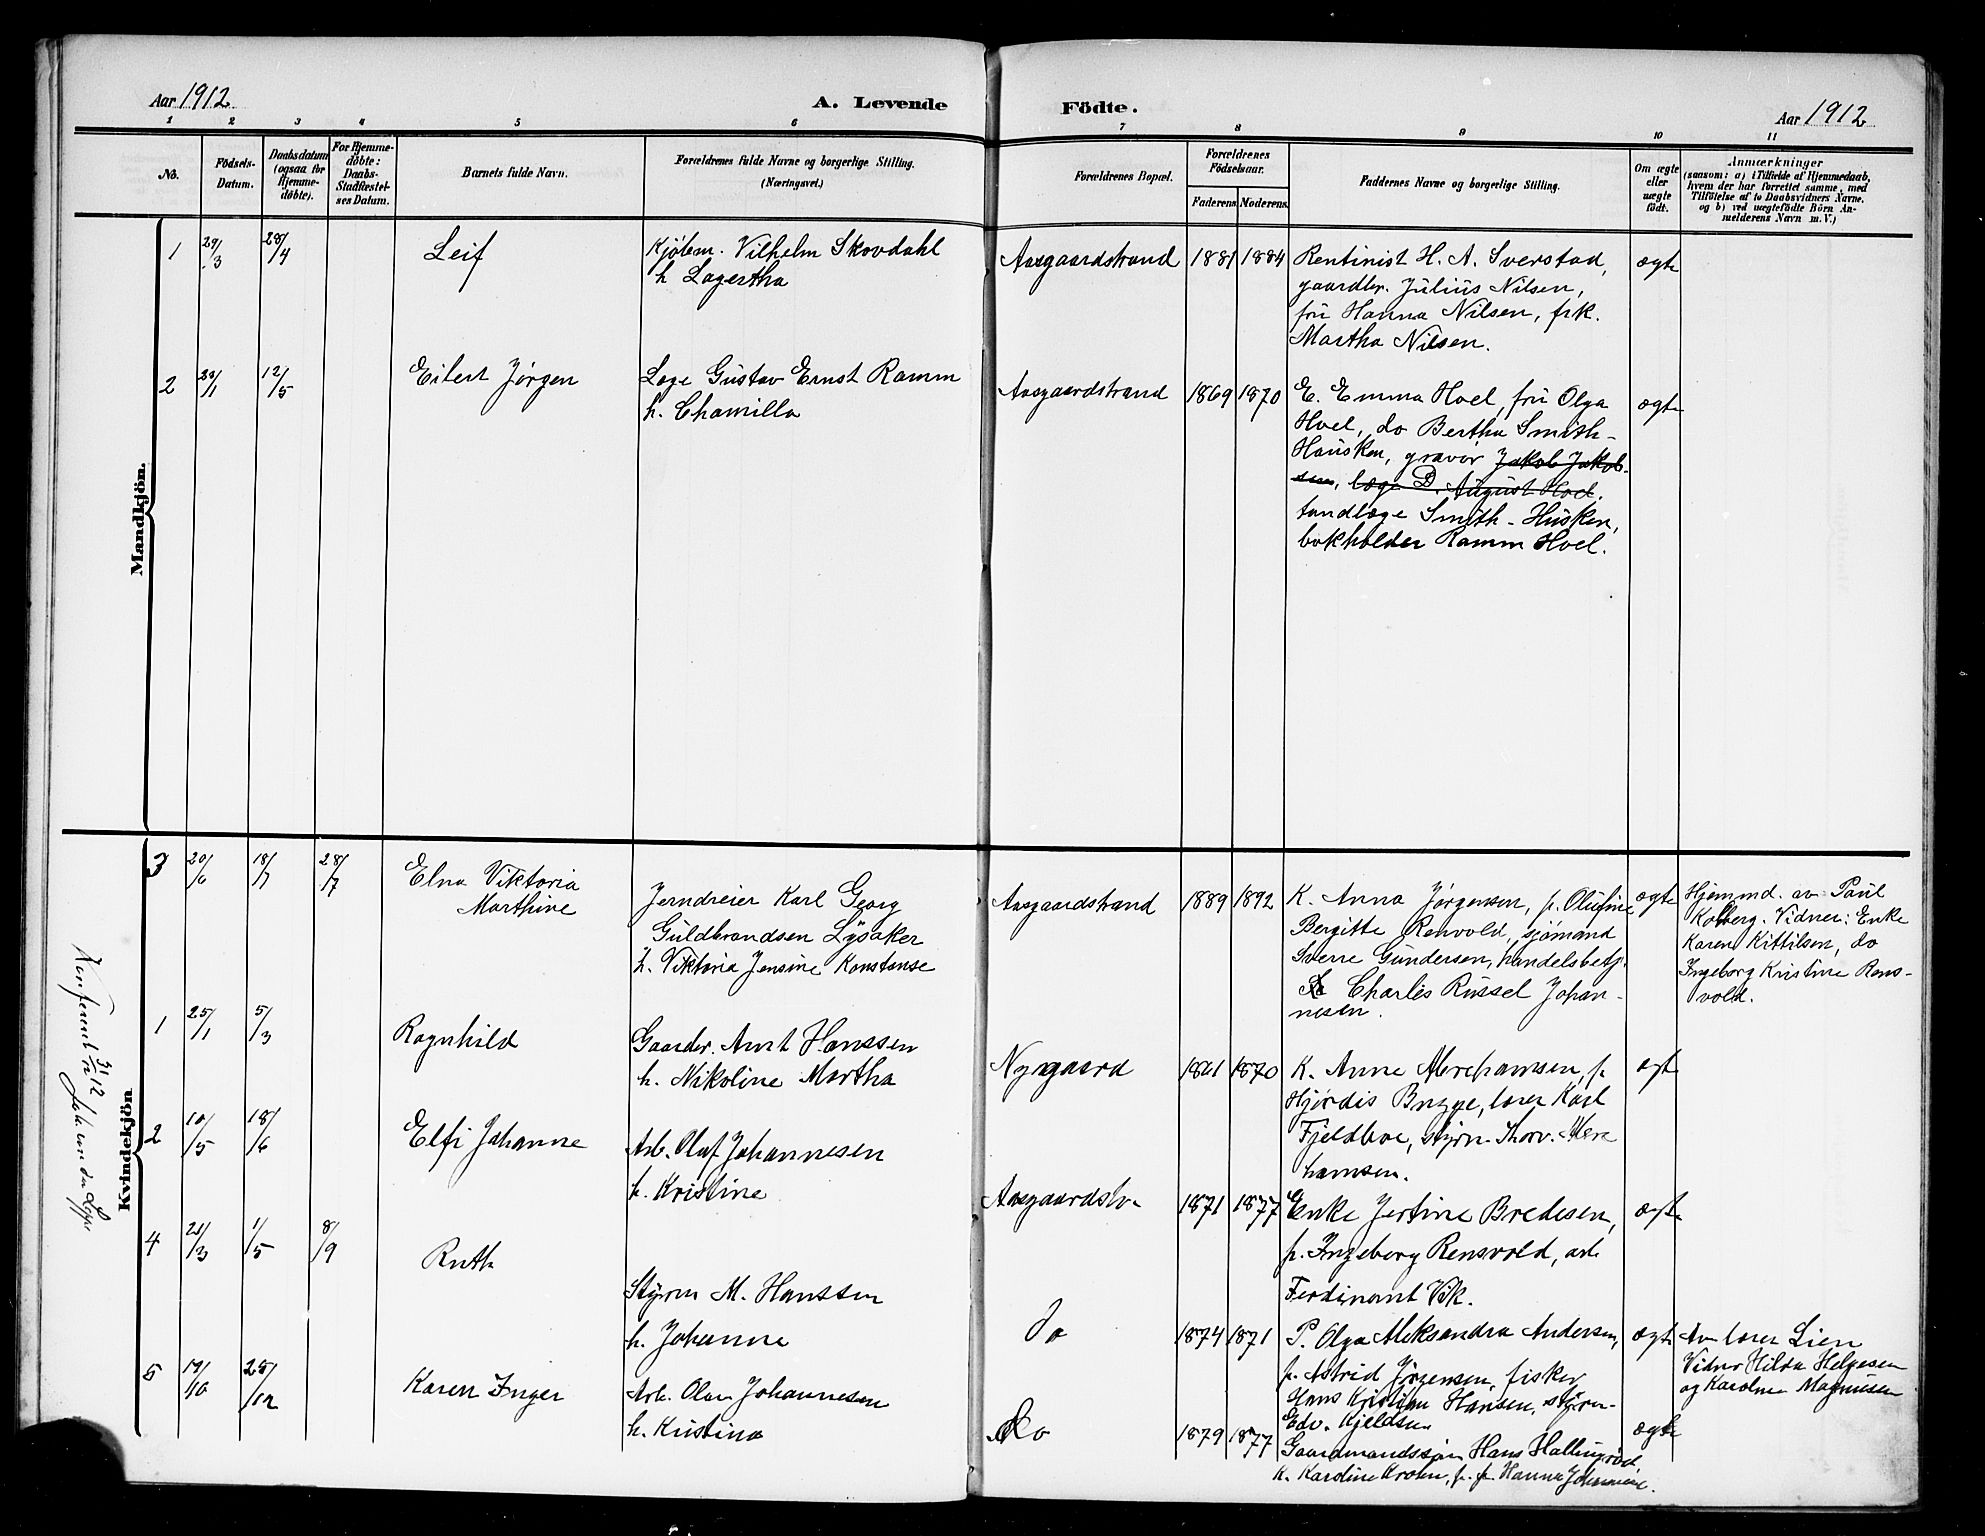 Aar 1912
A. Levende
Födte.
Aar 1912
1 2 3 4 5 6 7 8 9 10 11
No.
Födsels-
Datum.
Daabsdatum
(ogsaa for
Hjemme-
döbte).
For Hjemme-
döbte:
Daabs-
Stadfæstel-
ses Datum.
Barnets fulde Navn.
Forældrenes fulde Navne og borgerlige Stilling.
(Næringsvei.)
Forældrenes Bopæl.
Forældrenes
Födselsaar.
Faderens Moderens
Faddernes Navne og borgerlige Stilling.
Om ægte
eller
uægte
födt.
Anmærkninger
(saasom: a) i Tilfælde af Hjemmedaab,
hvem der har forrettet samme, med
Tilföielse af to Daabsvidners Navne.
og b) ved uægtefödte Börn An-
melderens Navn m.V.)
Mandkjön.
1 29/3 28/4 Leif
Kjøbm. Vilhelm Skovdahl
h Lagertha
Aasgaardstrand 1881 1884
Rentinist H. A. Sverstad,
gaardbr. Julius Nilsen,
fru Hanna Nilsen, frk.
Martha Nilsen.
ægte
2 12/5 Eilert Jørgen
Læge Gustav Ernst Ramm
h. Chamilla
Aasgaardstrand 1869 1870
E. Emma Hoel, fru Olga
Hoel, do Bertha Smith-
Hausken, gravør Jakob Jakob-
sen, læge D. August Hoel.
tandlæge Smith-Husken,
bokholder Ramm Hoel.
ægte
Kvindekjön
3 20/6 18/7 28/7 Elna Viktoria
Marthine
Jerndreier Karl Georg
Guldbrandsen Lysaker
h. Viktoria Jensine Konstanse
Aasgaardstrand 1889 1892
K. Anna Jørgensen, p. Olufine
Bergitte Renvold, sjømand
Sverre Gundersen, handelsbetj.
Charles Russel Johan-
nesen.
ægte
Hjemmd. av Paul
Kolberg. Vidner: Enke
Karen Kittilsen, do
Ingeborg Kristine Rens-
vold.
1 25/1 5/3 Ragnhild
Gaardbr. Arnt Hanssen
h. Nikoline Martha
Nygaard 1870
K. Anne Abrahamsen, p.
Hjørdis Brygge, lærer Karl
Fjeldboe, styrm. Thorv. Abra
hamsen.
ægte
2 10/5 18/6 Elfi Johanne
Arb. Olaf Johannesen
h. Kristine
Aasgaardstr. 1871 1877
Enke Jertine Bredesen,
p. Ingeborg Rensvold, arb
Ferdinant Vik.
ægte
4 21/3 1/5 8/9 Ruth
Styrm M. Hanssen
h. Johanne
do 1874 1871
P. Olga Aleksandra Andersen,
p. Astrid Jörgensen, fisker
Hans Kristian Hansen, styrm-
Edv. Kjeldsen
ægte
Av lærer Lien
Vidner Hilda Helgesen
og Karoline Magnussen
5 19/10 25/12 Karen Inger
Arb. Olav Johannesen
h. Kristine
do 1879 1877
Gaardmandssøn Hans Hallingrød,
K. Karoline Kroken, p. p. Hanna Johannesen.
ægte
Konferert 31/12 12